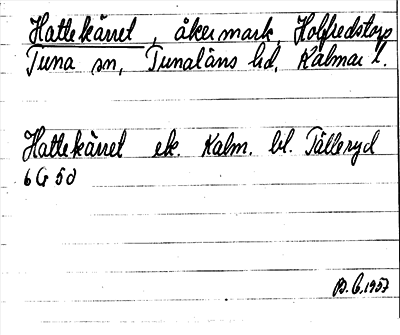 Hattekärret, åkermark, Holfredstorp
Tuna sn, Tunaläns hd, Kalmar l.
Hattekärret ek. Kalm. bl. Tålleryd
6 G 5 d
B. G. 1957